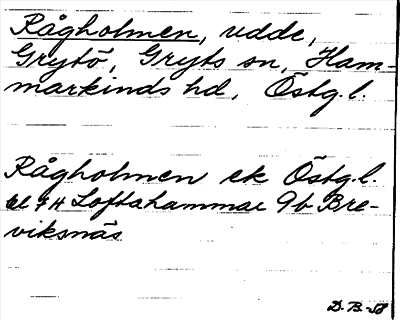 Rågholmen, udde,
Grytö, Gryts sn, Ham-
markinds hd, Östg.l.
Rågholmen ek Östg.l.
bl 7H Loftahammar 9b Bre-
viksnäs
D.B.-58